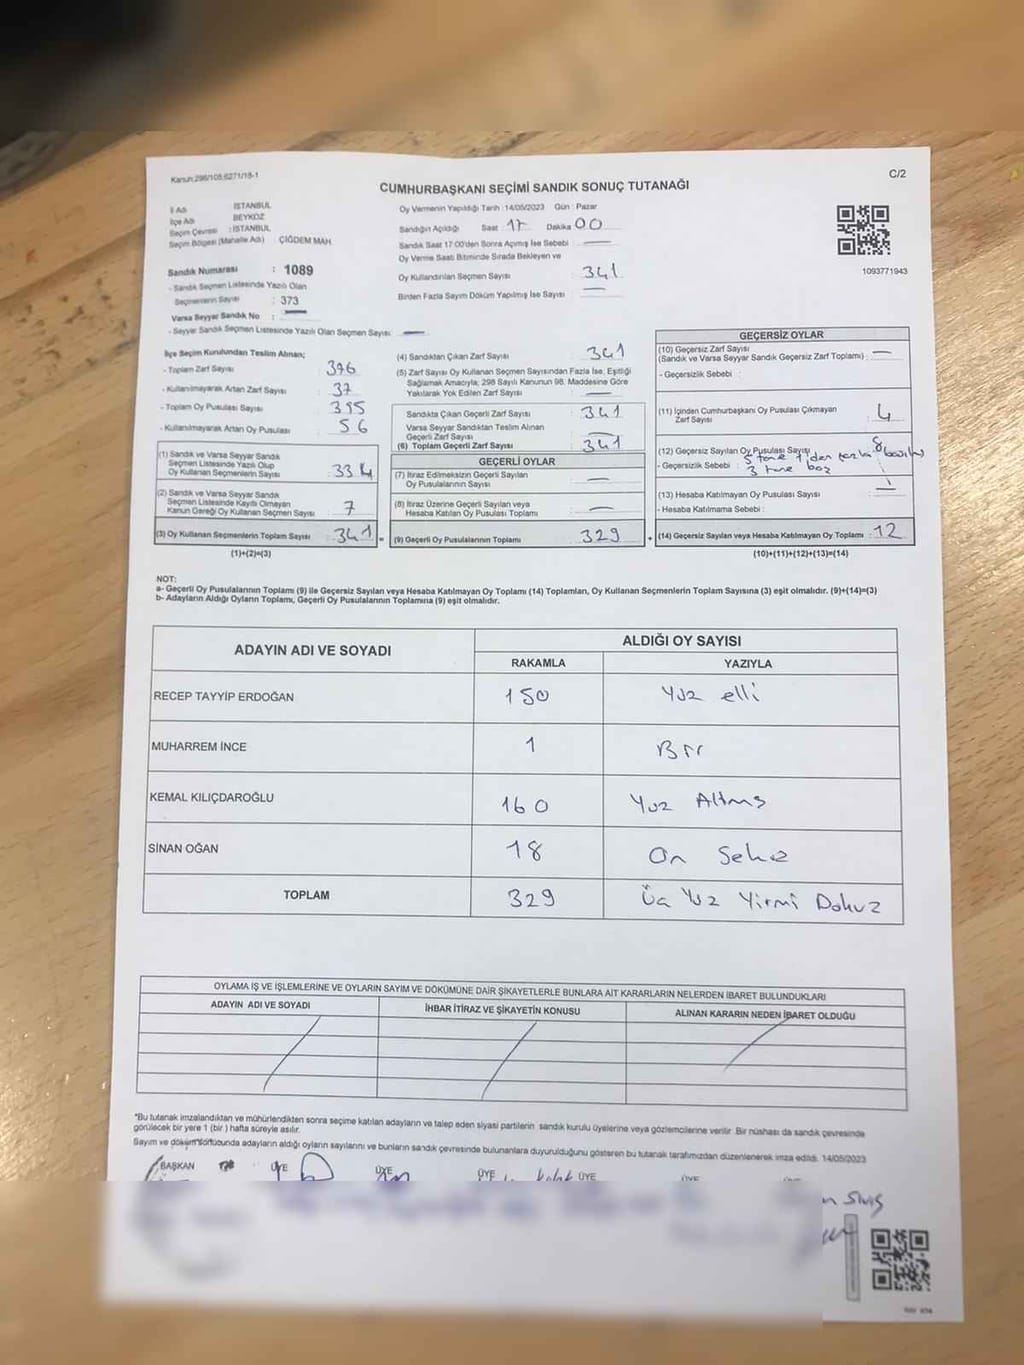 Kanun:298/105;6271/18-1
C/2
CUMHURBAŞKANI SEÇİMİ SANDIK SONUÇ TUTANAĞI
İl Adı İSTANBUL
İlçe Adı BEYKOZ
Seçim Çevresi : İSTANBUL
Seçim Bölgesi (Mahalle Adı) : ÇİĞDEM MAH.
Sandık Numarası : 1089
- Sandık Seçmen Listesinde Yazılı Olan
Seçmenlerin Sayısı : 373
Varsa Seyyar Sandık No : —
- Seyyar Sandık Seçmen Listesinde Yazılı Olan Seçmen Sayısı : —
Oy Vermenin Yapıldığı Tarih : 14/05/2023 Gün : Pazar
Sandığın Açıldığı Saat 17 Dakika 00
Sandık Saat 17:00'den Sonra Açılmış İse Sebebi —
Oy Verme Saati Bitiminde Sırada Bekleyen ve
Oy Kullandırılan Seçmen Sayısı 341
Birden Fazla Sayım Döküm Yapılmış İse Sayısı —
1093771943
İlçe Seçim Kurulundan Teslim Alınan;
- Toplam Zarf Sayısı : 376
- Kullanılmayarak Artan Zarf Sayısı : 37
- Toplam Oy Pusulası Sayısı : 395
- Kullanılmayarak Artan Oy Pusulası : 56
(1) Sandık ve Varsa Seyyar Sandık
Seçmen Listesinde Yazılı Olup
Oy Kullanan Seçmenlerin Sayısı : 334
(2) Sandık ve Varsa Seyyar Sandık
Seçmen Listesinde Kayıtlı Olmayan
Kanun Gereği Oy Kullanan Seçmen Sayısı : 7
(3) Oy Kullanan Seçmenlerin Toplam Sayısı : 341
(1)+(2)=(3)
(4) Sandıktan Çıkan Zarf Sayısı : 341
(5) Zarf Sayısı Oy Kullanan Seçmen Sayısından Fazla İse, Eşitliği
Sağlamak Amacıyla; 298 Sayılı Kanunun 98. Maddesine Göre
Yakılarak Yok Edilen Zarf Sayısı : —
Sandıkta Çıkan Geçerli Zarf Sayısı : 341
Varsa Seyyar Sandıktan Teslim Alınan
Geçerli Zarf Sayısı : —
(6) Toplam Geçerli Zarf Sayısı : 341
GEÇERLİ OYLAR
(7) İtiraz Edilmeksizin Geçerli Sayılan
Oy Pusulalarının Sayısı : —
(8) İtiraz Üzerine Geçerli Sayılan veya
Hesaba Katılan Oy Pusulası Toplamı : —
(9) Geçerli Oy Pusulalarının Toplamı : 329
GEÇERSİZ OYLAR
(10) Geçersiz Zarf Sayısı
(Sandık ve Varsa Seyyar Sandık Geçersiz Zarf Toplamı) : —
- Geçersizlik Sebebi :
(11) İçinden Cumhurbaşkanı Oy Pusulası Çıkmayan
Zarf Sayısı : 4
(12) Geçersiz Sayılan Oy Pusulası Sayısı : 8
- Geçersizlik Sebebi : 5 tane 1'den fazla
3 tane boş
(13) Hesaba Katılmayan Oy Pusulası Sayısı : —
- Hesaba Katılmama Sebebi :
(14) Geçersiz Sayılan veya Hesaba Katılmayan Oy Toplamı : 12
(10)+(11)+(12)+(13)=(14)
NOT:
a- Geçerli Oy Pusulasının Toplamı (9) ile Geçersiz Sayılan veya Hesaba Katılmayan Oy Toplamı (14) Toplamları, Oy Kullanan Seçmenlerin Toplam Sayısına (3) eşit olmalıdır. (9)+(14)=(3)
b- Adayların Aldığı Oyların Toplamı, Geçerli Oy Pusulalarının Toplamına (9) eşit olmalıdır.
ADAYIN ADI VE SOYADI ALDIĞI OY SAYISI
RAKAMLA YAZIYLA
RECEP TAYYİP ERDOĞAN 150 Yüz elli
MUHARREM İNCE 1 Bir
KEMAL KILIÇDAROĞLU 160 Yüz Altmış
SİNAN OĞAN 18 On Sekiz
TOPLAM 329 Üç Yüz Yirmi Dokuz
OYLAMA İŞ VE İŞLEMLERİNE VE OYLARIN SAYIM VE DÖKÜMÜNE DAİR ŞİKAYETLERLE BUNLARA AİT KARARLARIN NELERDEN İBARET BULUNDUKLARI
ADAYIN ADI VE SOYADI İHBAR İTİRAZ VE ŞİKAYETİN KONUSU ALINAN KARARIN NEDEN İBARET OLDUĞU
*Bu tutanak imzalandıktan ve mühürlendikten sonra seçime katılan adayların ve talep eden siyasi partilerin sandık kurulu üyelerine veya gözlemcilerine verilir. Bir nüshası da sandık çevresinde
görülecek bir yere 1 (bir ) hafta süreyle asılır.
Sayım ve döküm sonucunda adayların aldığı oyların sayılarını ve bunların sandık çevresinde bulunanlara duyurulduğunu gösteren bu tutanak tarafımızdan düzenlenerek imza edildi. 14/05/2023
BAŞKAN ÜYE ÜYE ÜYE ÜYE ÜYE